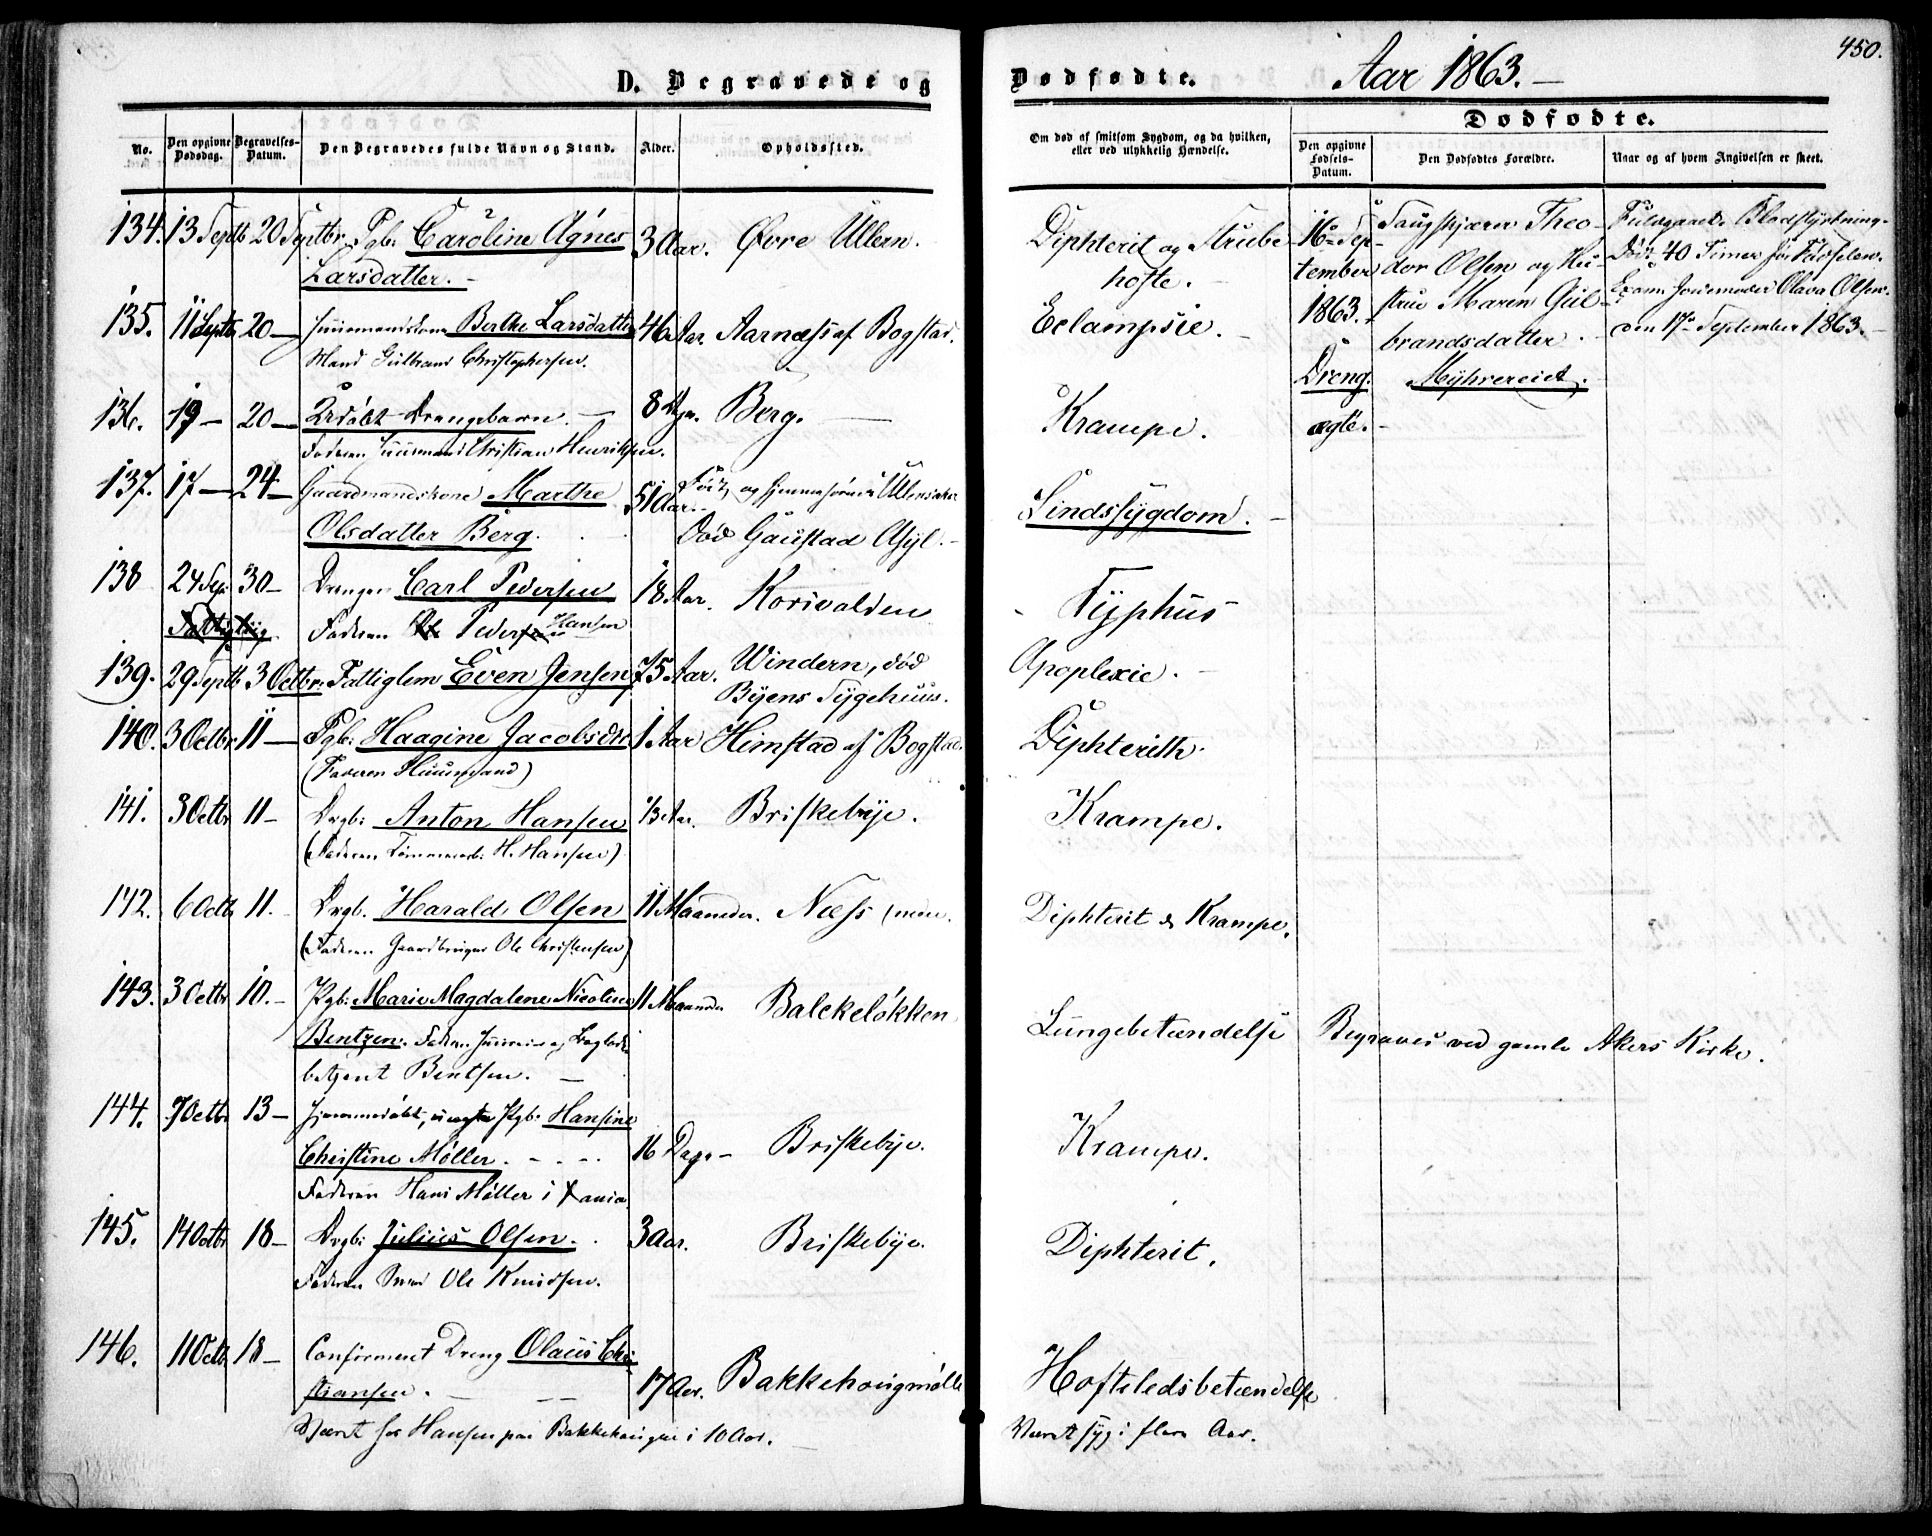 D. Begravede og
No.
Den opgivne Dødsdag.
Begravelses-Datum.
Den Begravedes fulde Navn og Stand.
Alder.
Opholdssted.
134. 13 Septb 20 Septbr. Pgb. Caroline Agnes 3 Aar. Øvre Ullern.
Larsdatter. -
135. 11 Septbr 20 - Huusmandskone Berthe Larsdatter 46 Aar Aarnæs af Bogstad.
Mand Gulbrand Christophersen.
136. 19 - 20 - Udøbt Drengebarn. - 8 Dge. Berg. -
Faderen Huusmand Christian Henriksen.
137. 17 - 24 - Gaardmandskone Marthe 51 Aar. Født og hjemmehørende i Ullensaker
Olsdatter Berg. Død Gaustad Asyl. -
138 24 Sep. 30 - Drengen Carl Pedersen 18 Aar. Korsvolden
Fattiglig. Faderen Peder Hansen
139. 29 Septb 3 Octbr. Fattiglem Even Jensen 75 Aar. Windern, død
Byens Sygehuus.
140. 3 Octbr 11 - Pgb: Haagine Jacobsdtr 1 Aar Himstad af Bogstad.
(Faderen Huusmand)
141. 3 Octbr 11 - Drgb: Anton Hansen 1/3 Aar. Briskebye.
(Faderen Tømmermd: H. Hansen)
142. 6 Octb 11. Drgb. Harald Olsen 11 Maaneder. Næss
(Faderen Gaardbruger Ole Christensen)
143. 3 Octbr 10. - Pgb: Marie Magdalene Nicoline 11 Maaneder Balckeløkken
Bentzen. Faderen
betjent Bentsen. -
144. 7 Octbr 13 - Hjemmedøbt, uægte Pgb: Hansine
Christine Møller. - 16 Dage - Briskebye.
Faderen Hans Møller i Xania
145. 14 Octbr 18 - Drgb: Julius Olsen. 3 Aar. Briskebye.
Faderen Smed Ole Knudsen.
146. 11 Octb 18 - Confirmeret Dreng Olaus Chri
stiansen. - 17 Aar. Bakkehougmølle
Været hos Hansen paa Bakkehaugen i 10 Aar. -
Dødfødte.
Aar 1863. -
450.
Om død af smitsom Sygdom, og da hvilken, eller ved ulykkelig Hændelse.
Dødfødte.
Den opgivne Fødsels-Datum.
Den Dødfødtes Forældre.
Naar og af hvem Angivelsen er skeet.
Diphterit og Strube
hoste. -
Eclampsie.
Krampe.
Sindssygdom. -
Typhus
Apoplexie. -
Diphterith.
Krampe.
Diphterit & Krampe.
Lungebetændelse Begraves ved gamle Akers Kirke.
Krampe.
Diphterit.
Hofteledsbetændelse
Været syg i flere Aar.
16de Sep-
tember
1863.
Dreng.
ægte. -
Saugskjærer Theo-
dor Olsen og Hu-
strue Maren Gul-
brandsdatter.
Myhrereiet. -
Fuldbaaret. Blodstyrtning.
Død 40 Timer før Fødselen.
Exam. Jordemoder Olava Olsen.
den 17de September 1863. -